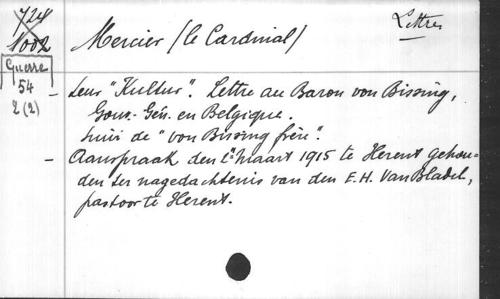 724
1002
Mercier (le Cardinal)
Lettres
Guerre
54
2(2)
- Leur "Kultur". Lettre au Baron von Bissing,
Gouv.-Gén. en Belgique.
Suivi de "von Bissing frère".
- Aanspraak den 1n Maart 1915 te Herent gehou-
den ter nagedachtenis van den E.H. Van Bladel,
pastoor te Herent.